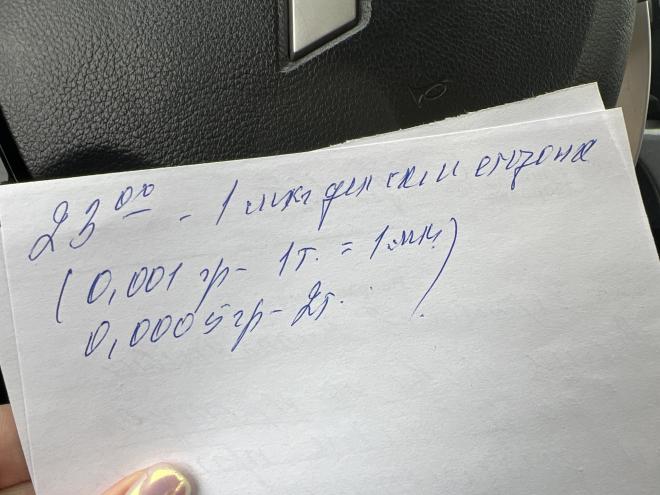 23⁰⁰ - 1 мкг дексаметазона
(0,001 гр - 1т. = 1 мл
0,0005 гр - 2т. )